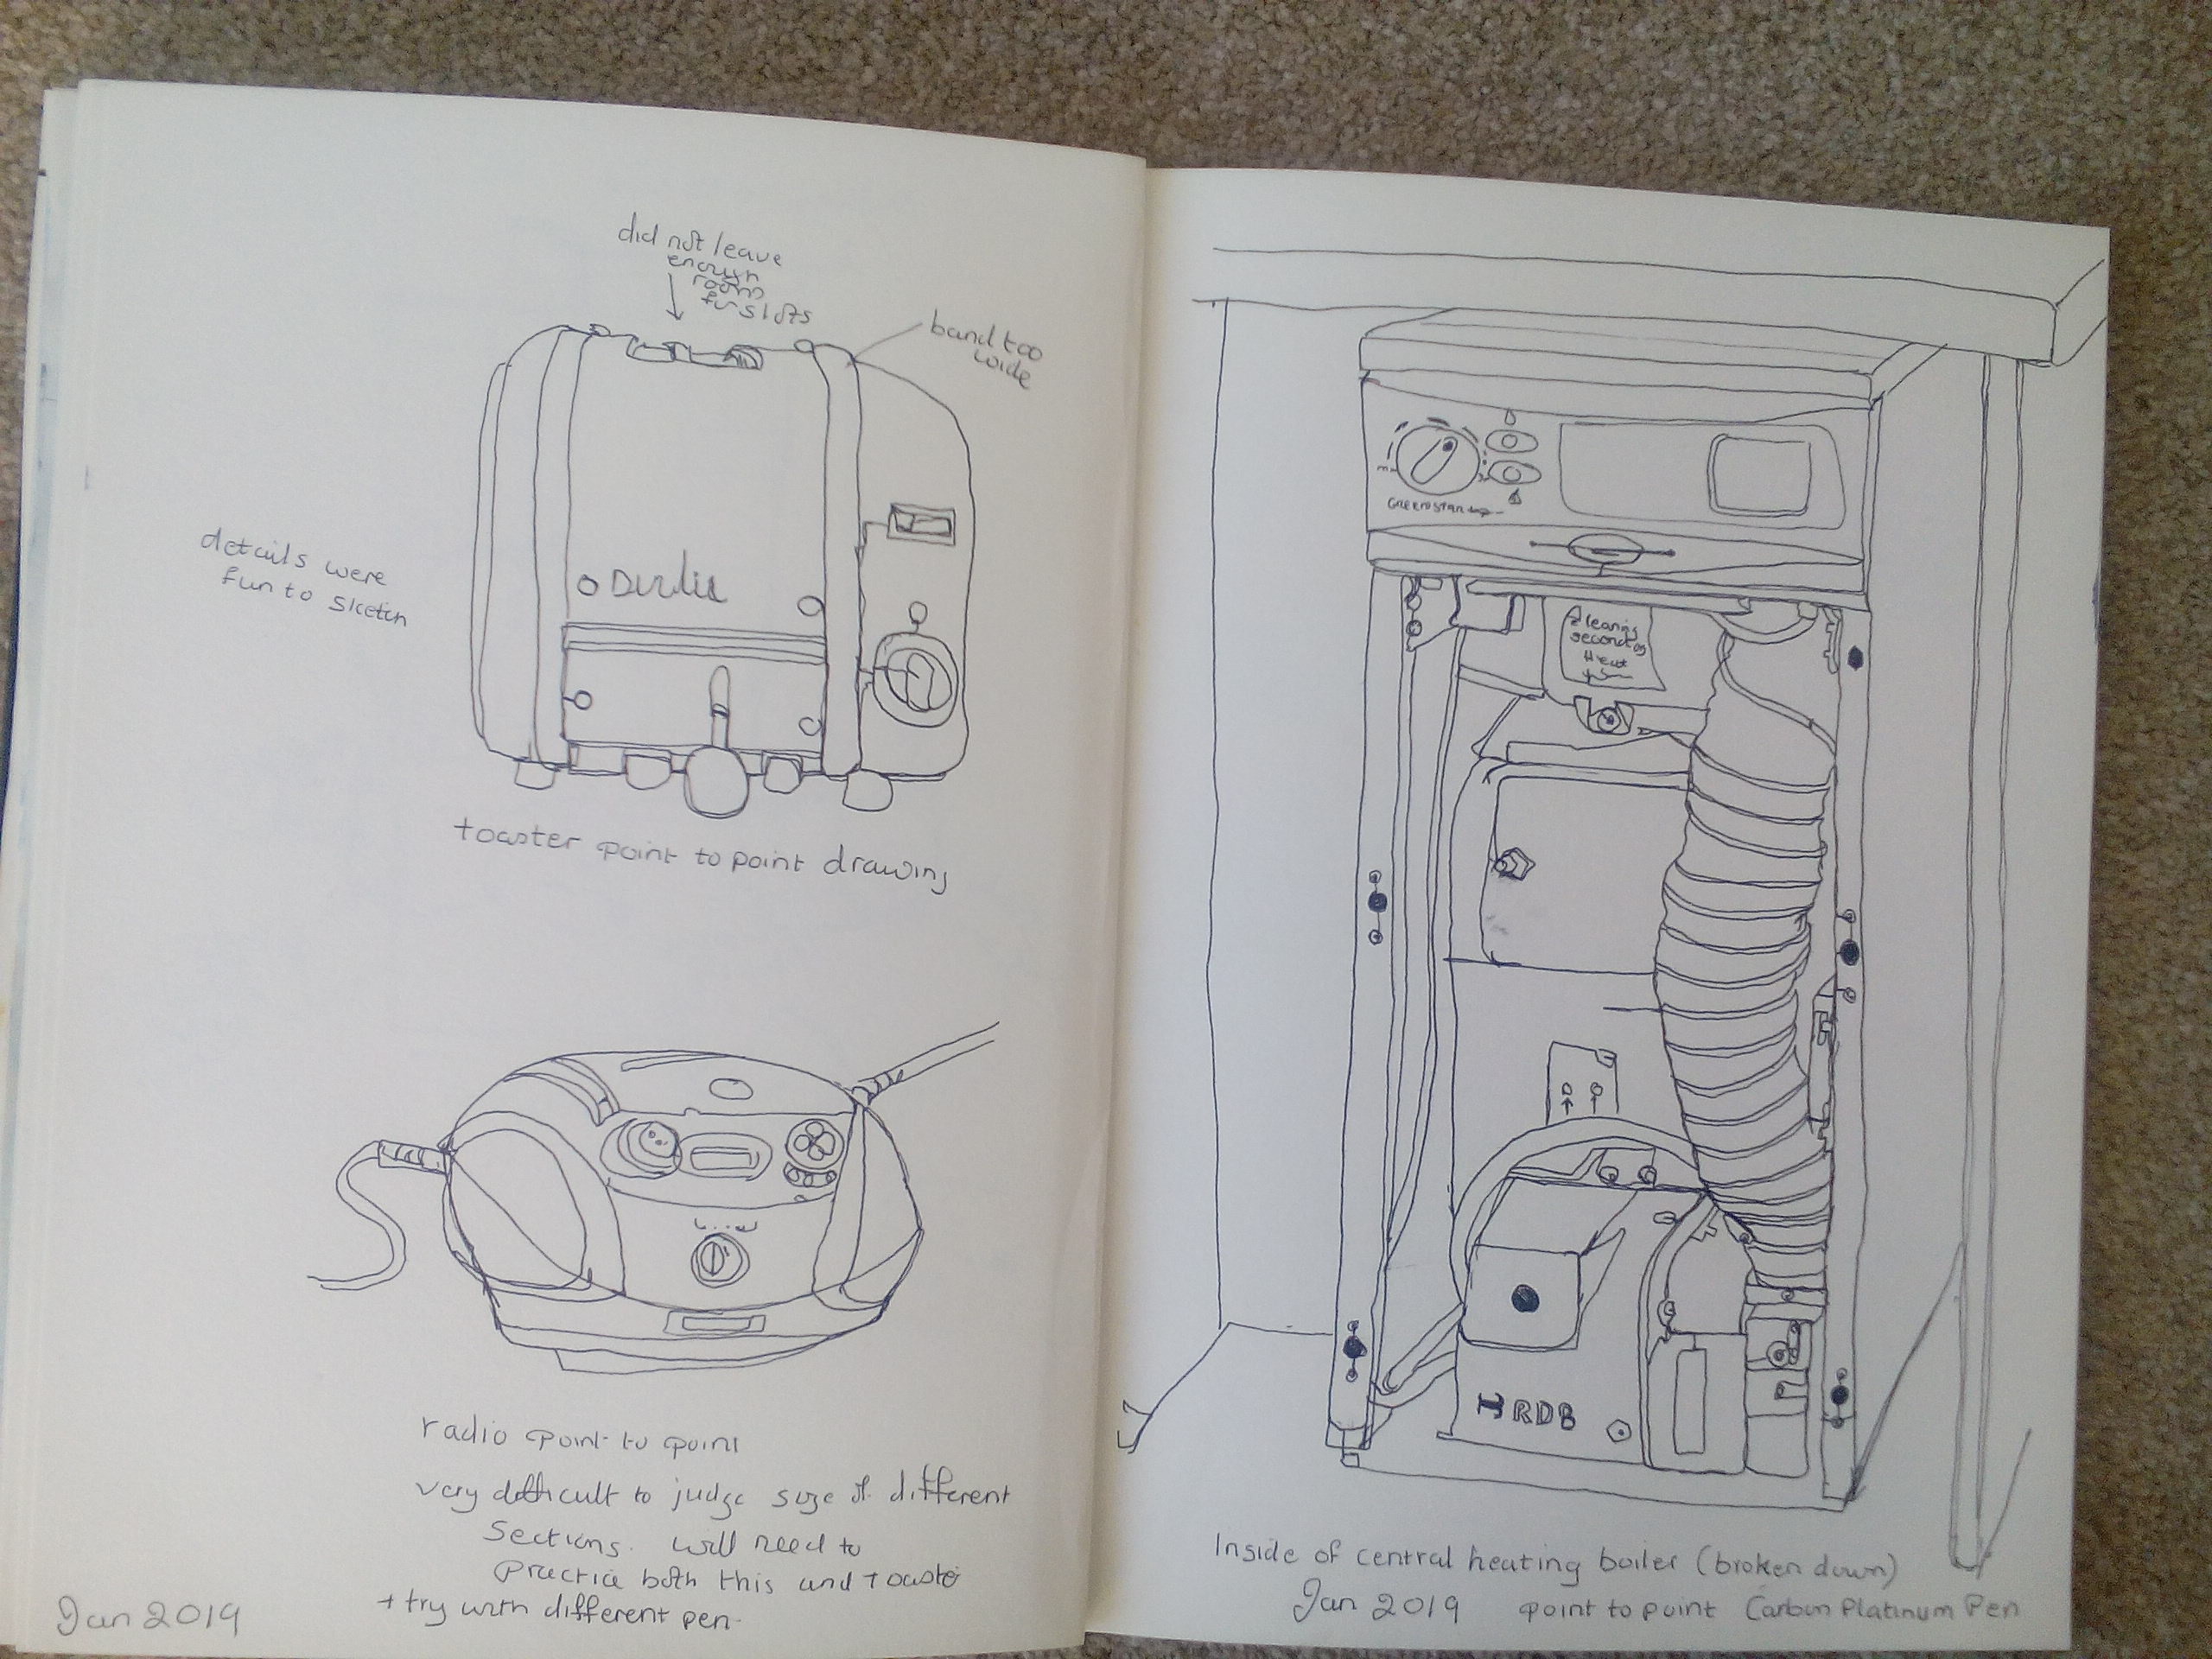 did not leave
enough
room
for slots
band too
wide
details were
fun to sketch
toaster point to point drawing
radio point to point
very difficult to judge size of different
sections. will need to
practice both this and toaster
+ try with different pen.
Jan 2019
GREENSTAR
cleaning
secondary
Heat
RDB
Inside of central heating boiler (broken down)
Jan 2019 point to point Carbon Platinum Pen